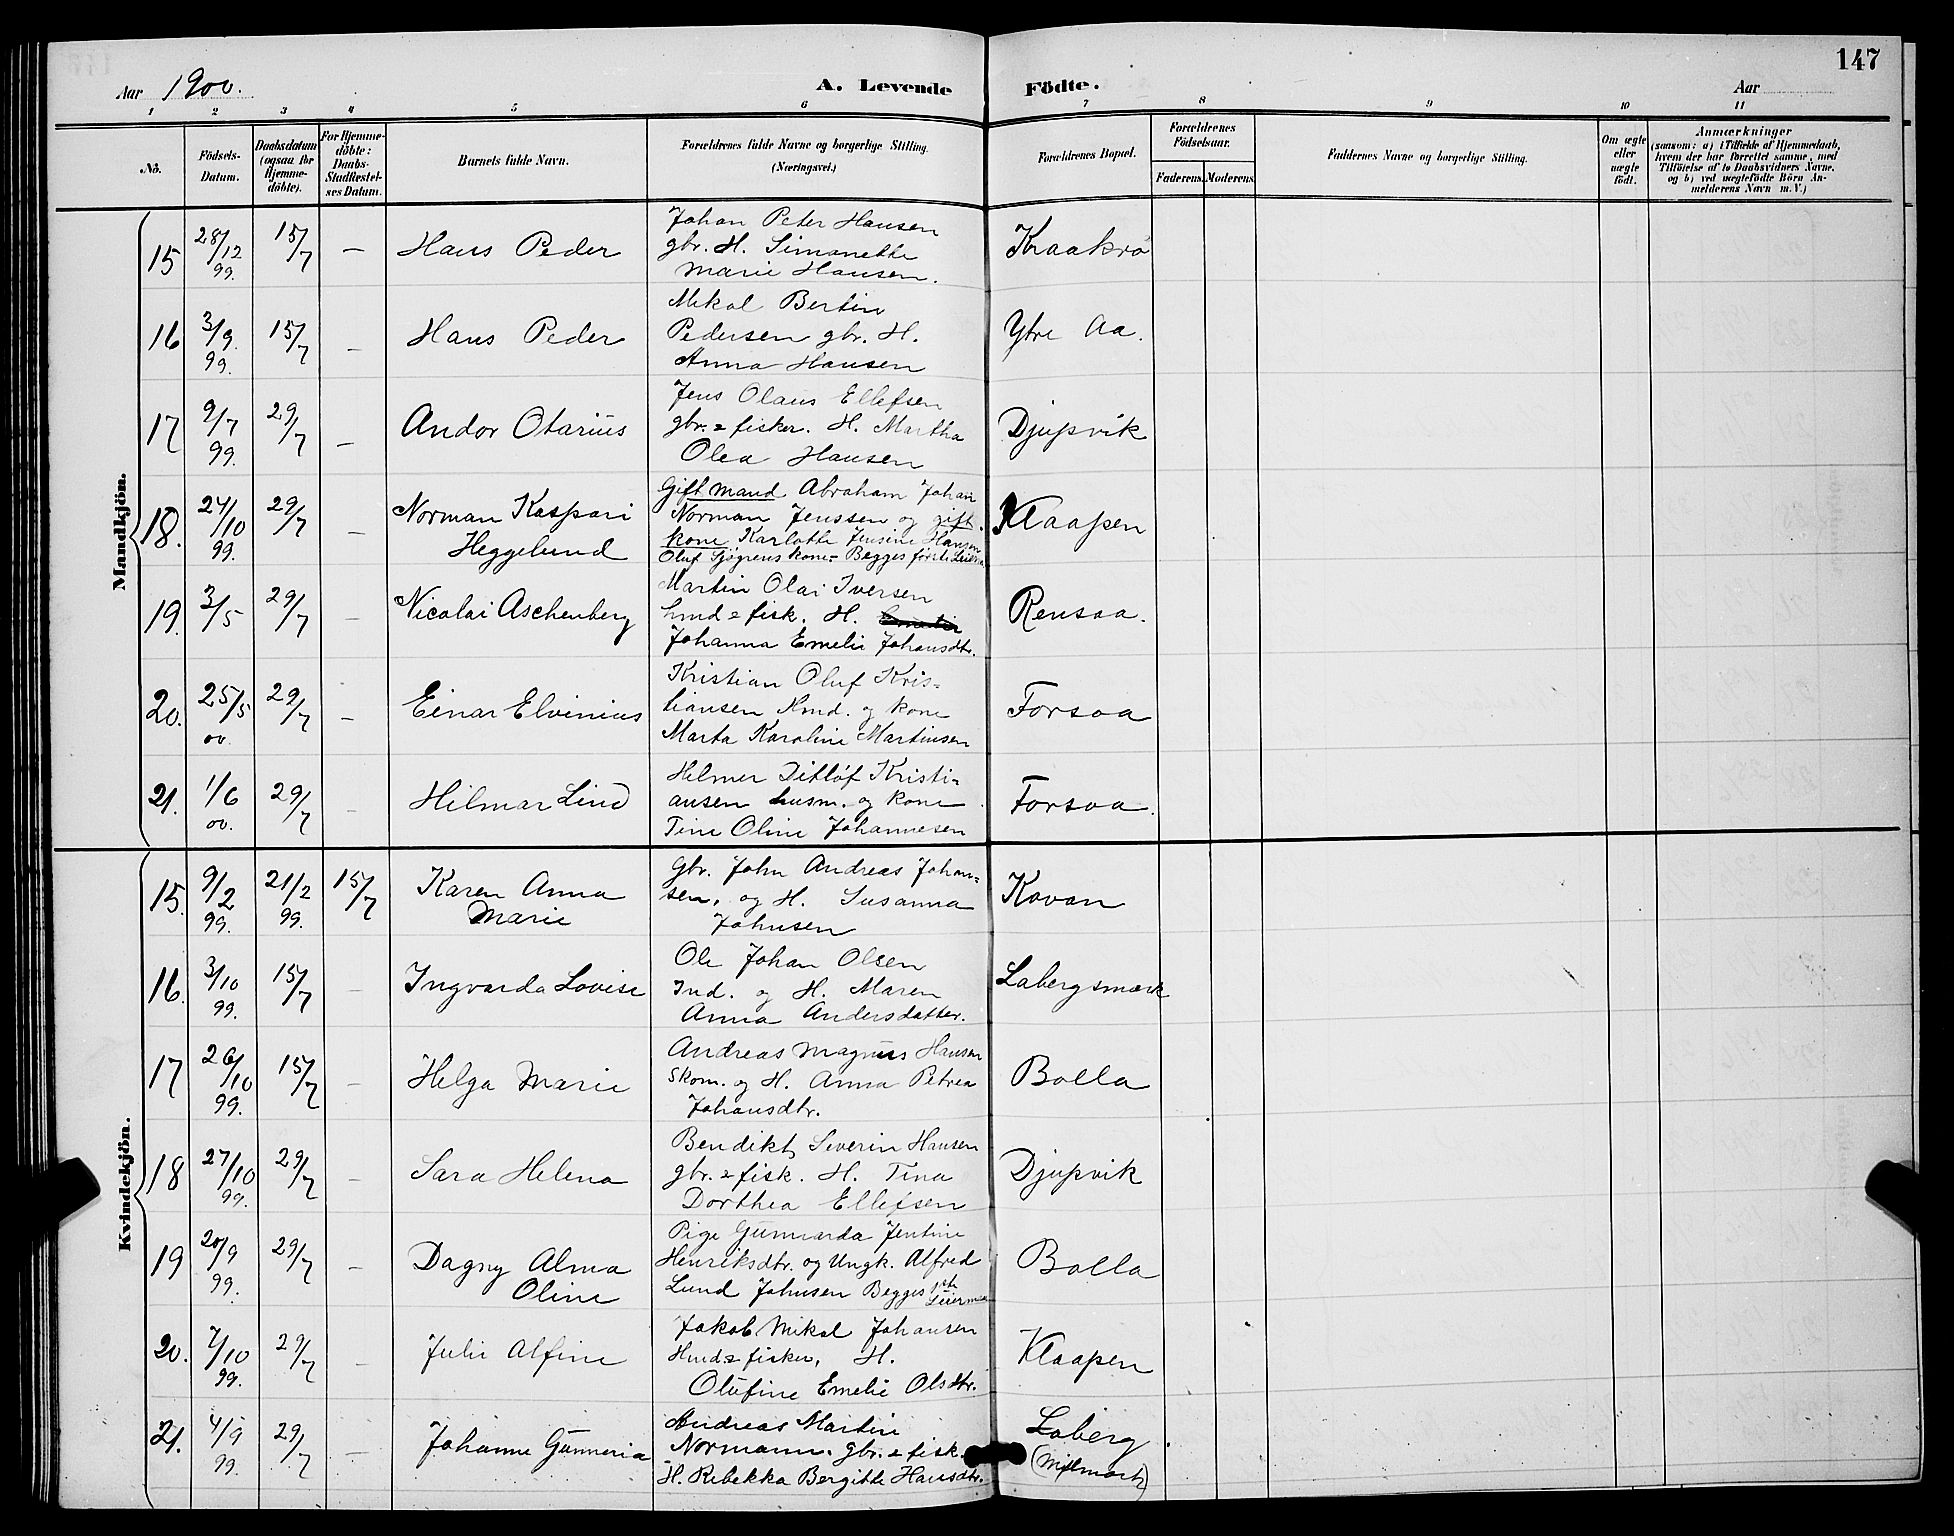 147
Aar 1900.
A. Levende Födte.
Aar
1 2 3 4 5 6 7 8 9 10 11
No.
Födsels-Datum.
Daabsdatum (ogsaa for Hjemme-döbte).
For Hjemme-döbte: Daabs-Stadfæstel-ses Datum.
Barnets fulde Navn.
Forældrenes fulde Navne og borgerlige Stilling. (Næringsvei.)
Forældrenes Bopæl.
Forældrenes Födselsaar.
Faderens. Moderens.
Faddernes Navne og borgerlige Stilling.
Om ægte eller uægte födt.
Anmærkninger
(saasom: a) i Tilfælde af Hjemmedaab,
hvem der har forrettet samme, med
Tilföielse af to Daabsvidners Navne,
og b) ved uægtefödte Börn An-
melderens Navn m. V.)
Mandkjön.
15 28/12 99. 15/7 — Hans Peder
Johan Peter Hansen
gbr. H. Simonette
Marie Hansen.
Kraakrø
16 3/9 99. 15/7 — Hans Peder
Mikal Bertin
Pedersen gbr. H.
Anna Hansen
Ytre Aa.
17 9/7 99. 29/7 — Andor Otarius
Jens Olaus Ellefsen
gbr. & fisker. H. Martha
Olea Hansen
Djupvik
18. 24/10 99. 29/7 — Norman Kaspari
Heggelund
Gift mand Abraham Johan
Norman Jenssen og gift
kone Karlotte Jensine Hansen
Oluf Sjøgrens kone - Begges første Leierm
Klaapen
19. 3/5 29/7 — Nicolai Aschenberg
Martin Olai Iversen
hmd & fisk. H.
Johanna Emelie Johansdtr.
Rensaa.
20. 25/5 00. 29/7 — Einar Elvinius
Kristian Oluf Kris-
tiansen Hmd. og kone
Marta Karoline Martinsen
Forsaa
21. 1/6 00. 29/7 — Hilmar Lind
Helmer Ditlöf Kristi-
ansen husm. og kone
Tine Oline Johannesen
Forsaa.
Kvindekjön.
15. 9/2 99. 21/2 99. 15/7 Karen Anna
Marie
Gbr. John Andreas Johan-
sen, og H. Susanna
Johnsen
Kovan
16. 3/10 99. 15/7 — Ingvarda Lovise
Ole Johan Olsen
Ind. og H. Maren
Anna Andersdatter.
Labergsmark
17 26/10 99. 15/7 — Helga Marie
Andreas Magnus Hansen
Skom. og H. Anna Petrea
Johansdtr.
Bolla
18 27/10 99. 29/7 — Sara Helena
Bendikt Severin Hansen
gbr. & fisk. H. Tina
Dorthea Ellefsen
Djupvik
19 20/9 99. 29/7 — Dagny Alma
Oline
Pige Gunnarda Jentine
Henriksdtr. og Ungk. Alfred
Lund Johnsen Begges 1ste Leiermaal
Bolla
20. 7/10 99. 29/7 — Julie Alfine
Jakob Mikal Johansen
Hmd & fisker, H.
Olufine Emelie Olsdtr.
Klaapen
21. 4/9 99. 29/7 — Johanne Gunneria
Andreas Martin
Normann. gbr. & fisk.
H. Rebekka Bergitte Hansdtr.
Laberg